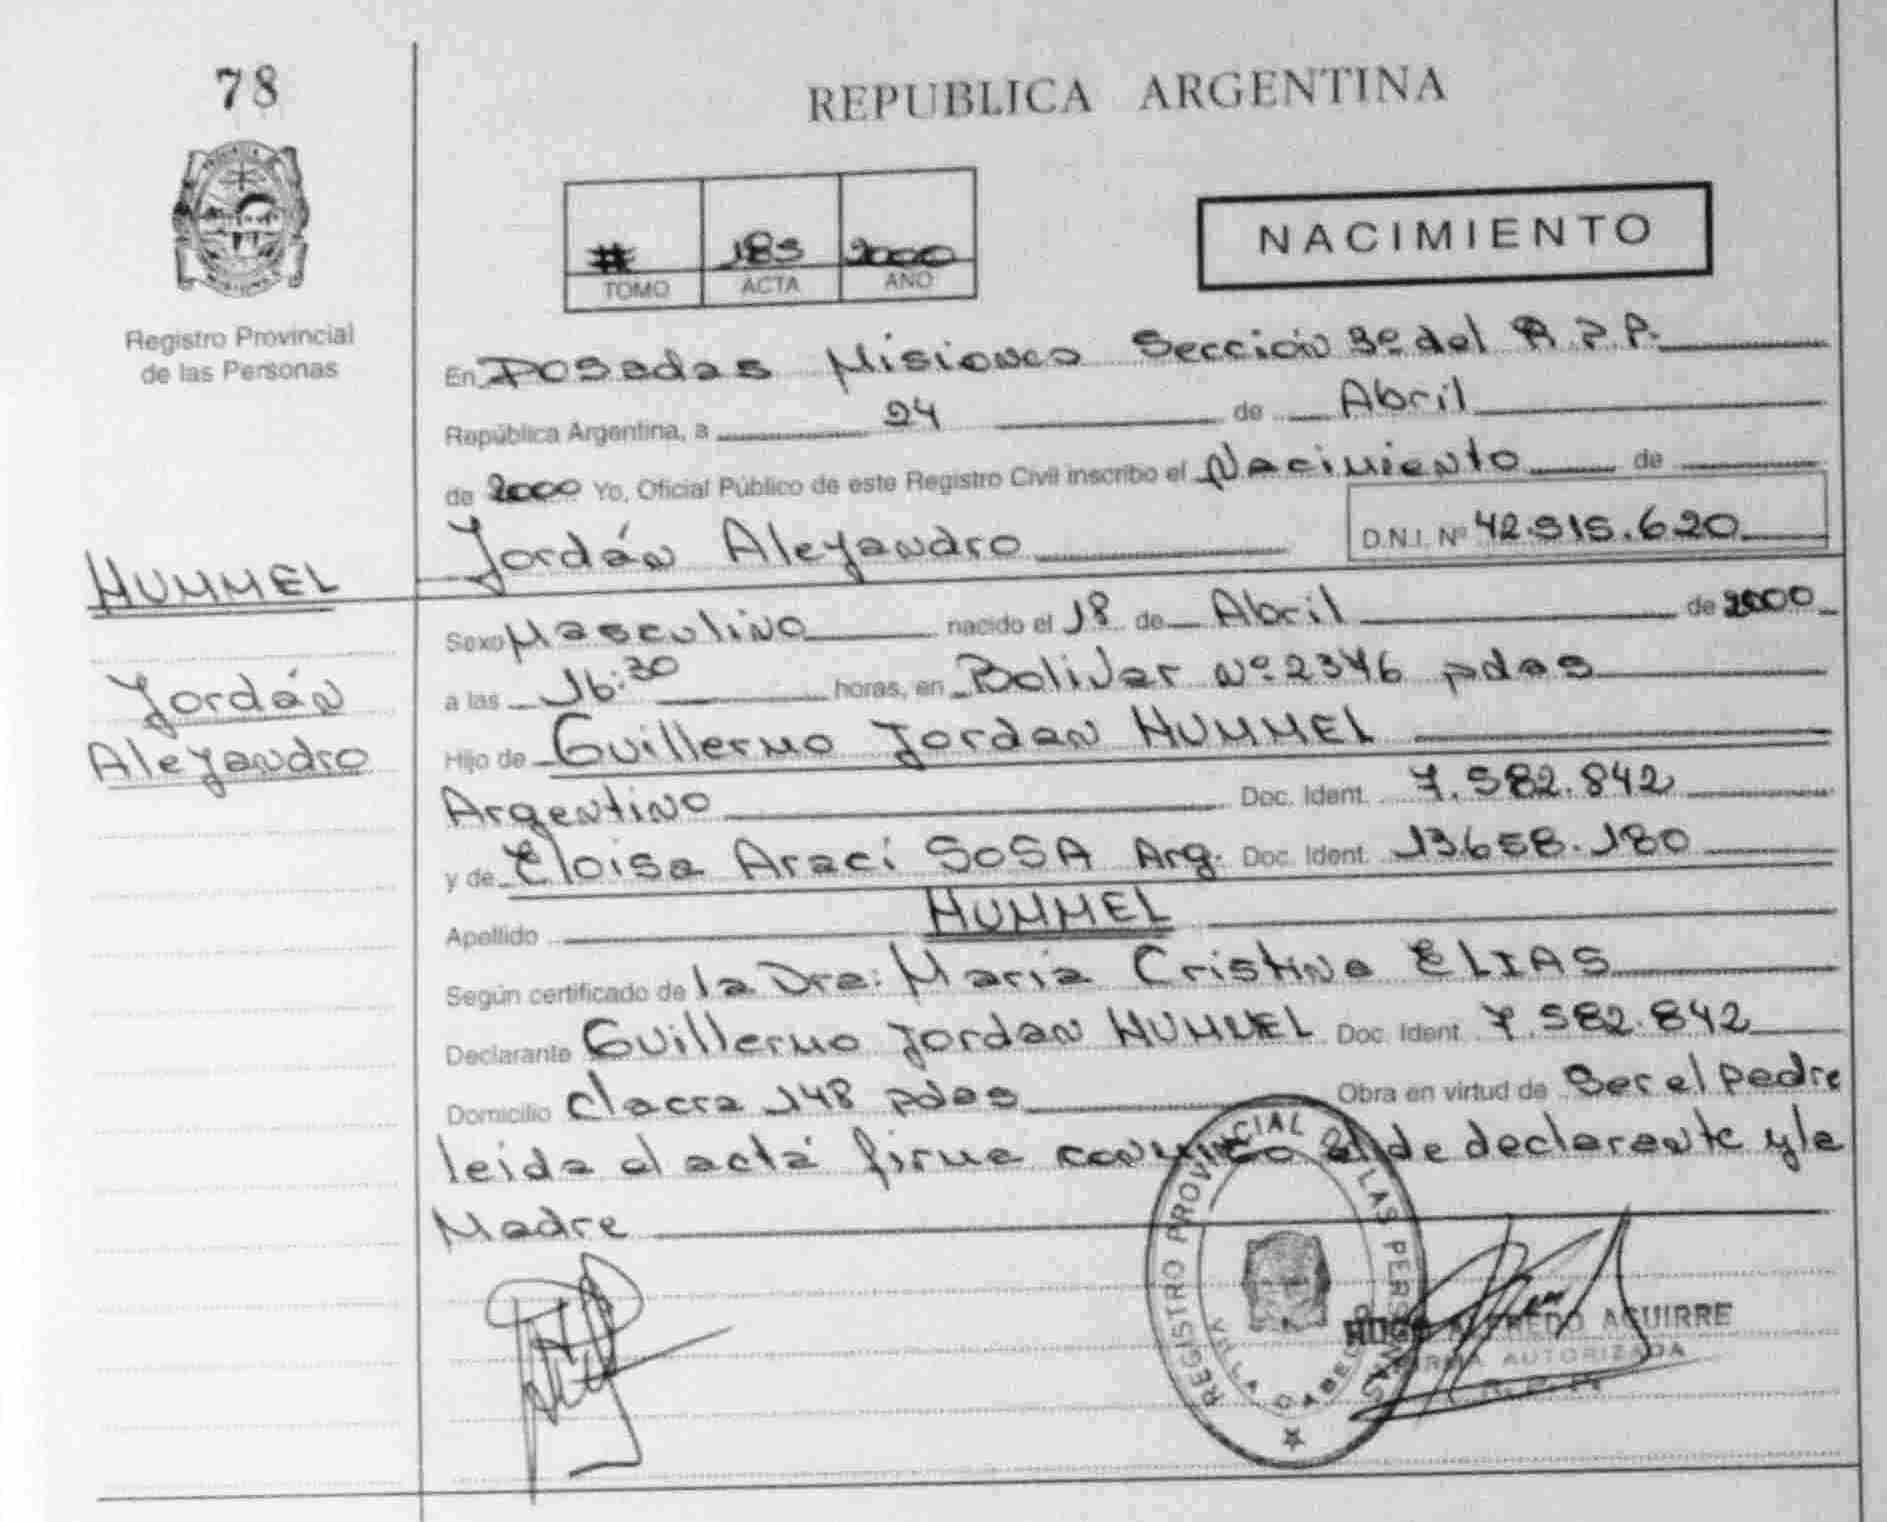 78
REPUBLICA ARGENTINA
# 185 2000
TOMO ACTA AÑO
NACIMIENTO
Registro Provincial
de las Personas
En Posadas Misiones Sección 3º del R.P.P.
República Argentina, a 24 de Abril
de 2000 Yo, Oficial Público de este Registro Civil inscribo el Nacimiento de
Jordán Alejandro D.N.I. Nº 42.515.620
HUMMEL
Jordán
Alejandro
Sexo Masculino nacido el 18 de Abril de 2000
a las 16:30 horas, en Bolivar Nº 2376 pdas
Hijo de Guillermo Jordan HUMMEL
Argentino Doc. Ident. 7.582.842
y de Eloisa Araci SOSA Arg. Doc. Ident. 13.658.180
Apellido HUMMEL
Según certificado de la Dra: Maria Cristina ELIAS
Declarante Guillermo Jordan HUMMEL Doc. Ident. 7.582.842
Domicilio Chacra 148 pdas Obra en virtud de Ser el padre
leida el acta firma conmigo el de declarante y la
Madre
REGISTRO PROVINCIAL DE LAS PERSONAS
VILLA CABELLO
HUGO ALFREDO AGUIRRE
FIRMA AUTORIZADA
R. P. P.